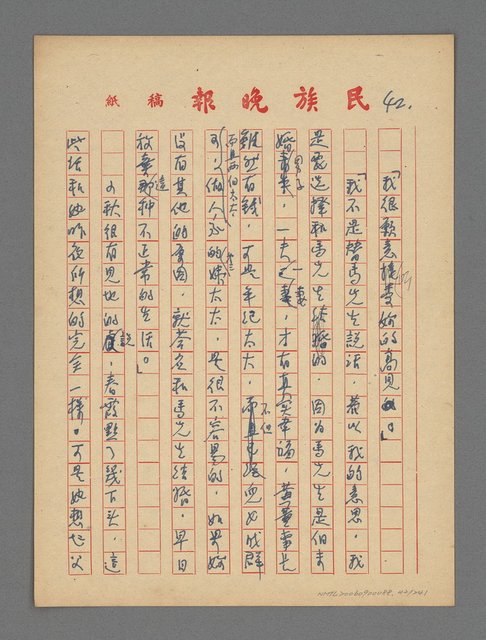 民族晚報 稿紙 42.
「我很願意接受妳的高見。」
「我不是替馬先生說話，若以我的意思，我
是要選擇和馬先生結婚的．因為馬先生是個未
婚男子，一夫一妻，才有真實幸福，黃董事長
雖然有錢，可是年紀太大，不但兒女成群
而且兩個太太，
可以做人家的姨太太，是很不容易的，如果妳
沒有其他的原因，就答允和馬先生結婚，早日
放棄這種不正常的生活。」
小秋很有見地的說，春霞點了幾下頭，這
些話和她昨夜所想的完全一樣。可是她想起父
NMTL20060900088. 42/241